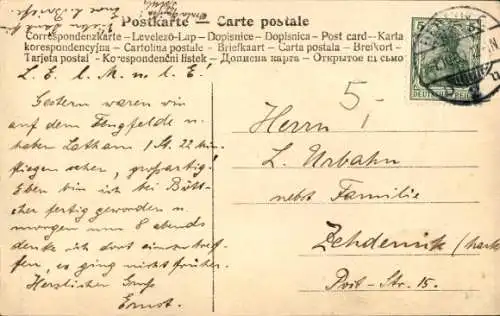 Postkarte — Carte postale
Correspondenzkarte - Levelező-Lap - Dopisnice - Dopisnica - Post card - Karta
korespondencyjna - Cartolina postale - Briefkaart - Carta postala - Brefkort -
Tarjeta postal - Korespondenční lístek - Дописна карта - Открытое письмо
DEUTSCHES REICH
5
L. E. L. M. n. L. E!
Gestern waren wir
auf dem Flugfelde u.
haben Latham 1 St. 22 Min.
fliegen sehen, großartig!
Eben bin ich bei Bött-
cher fertig geworden u.
morgen um 8 abends
denke ich dort einzutref-
fen, es ging nicht früher.
Herzlichen Gruß
Ernst.
Herrn
L. Urbahn
nebst Familie
Zehdenick (Mark)
Post-Str. 15.